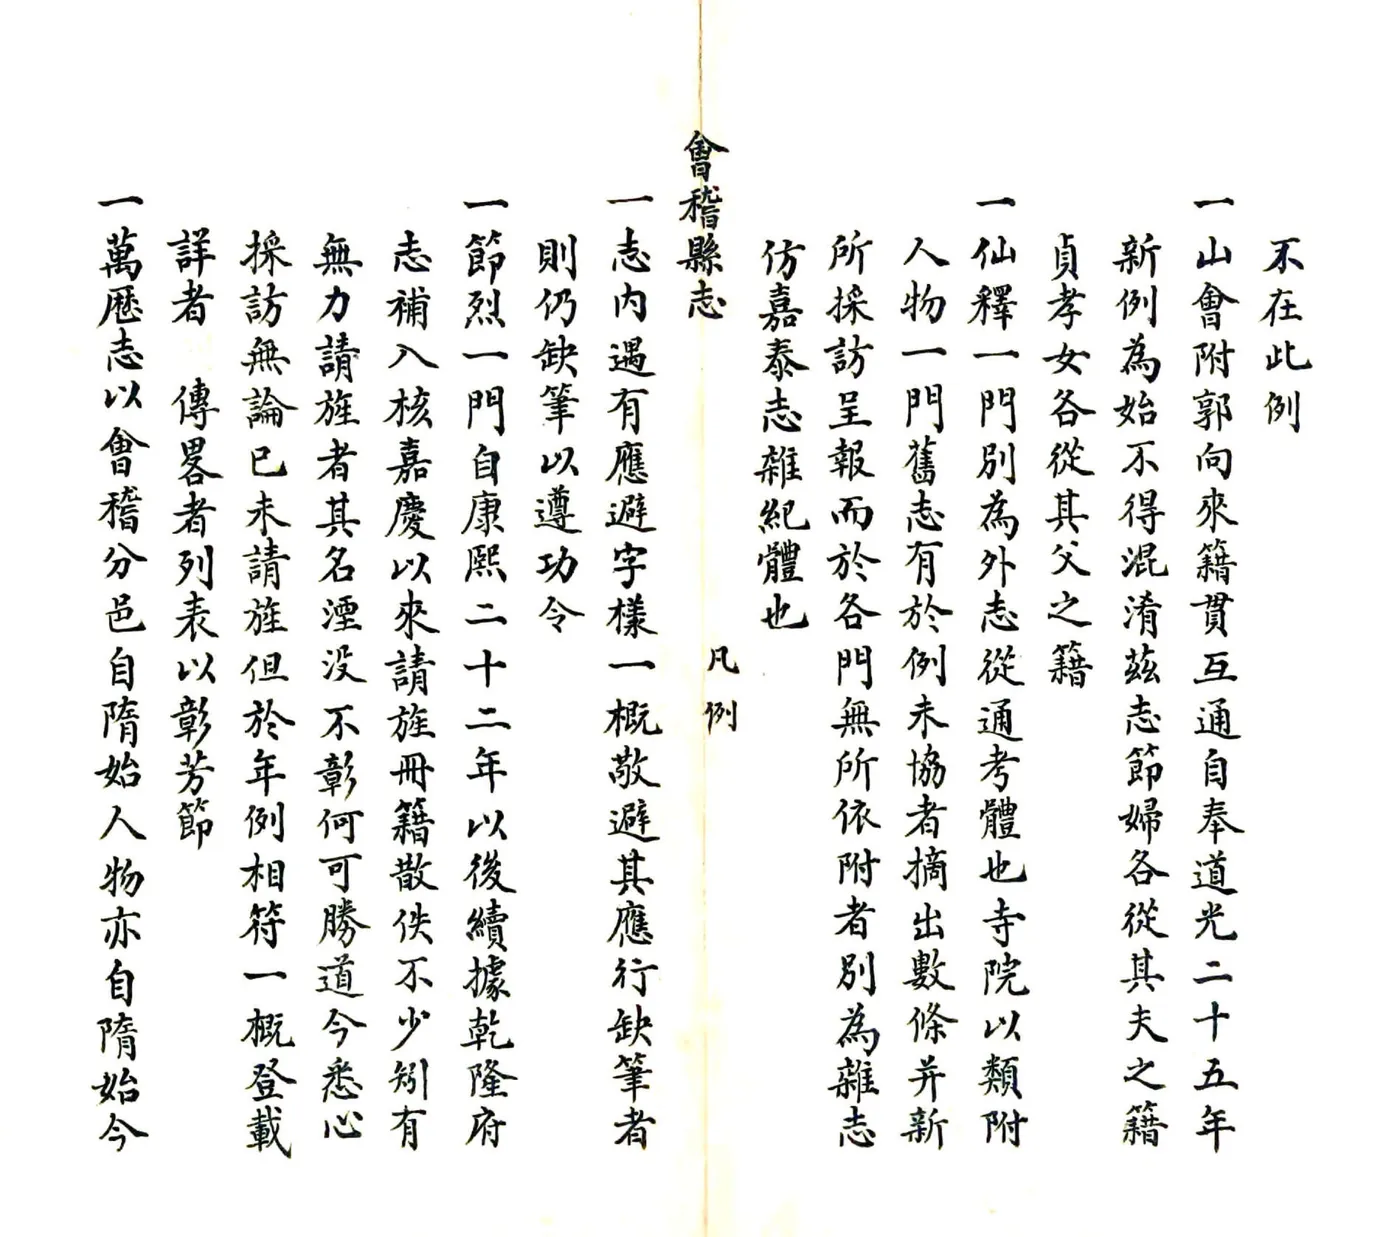 不在此例
一山會附郭向來籍貫互通自奉道光二十五年
新例為始不得混淆茲志節婦各從其夫之籍
貞孝女各從其父之籍
一仙釋一門別為外志從通考體也寺院以類附
人物一門舊志有於例未協者摘出數條并新
所採訪呈報而於各門無所依附者別為雜志
仿嘉泰志雜紀體也
會稽縣志
凡例
一志内遇有應避字樣一概敬避其應行缺筆者
則仍缺筆以遵功令
一節烈一門自康熙二十二年以後續據乾隆府
志補入核嘉慶以來請旌冊籍散佚不少矧有
無力請旌者其名湮没不彰何可勝道今悉心
採訪無論已未請旌但於年例相符一概登載
詳者　傳畧者列表以彰芳節
一萬厯志以會稽分邑自隋始人物亦自隋始今